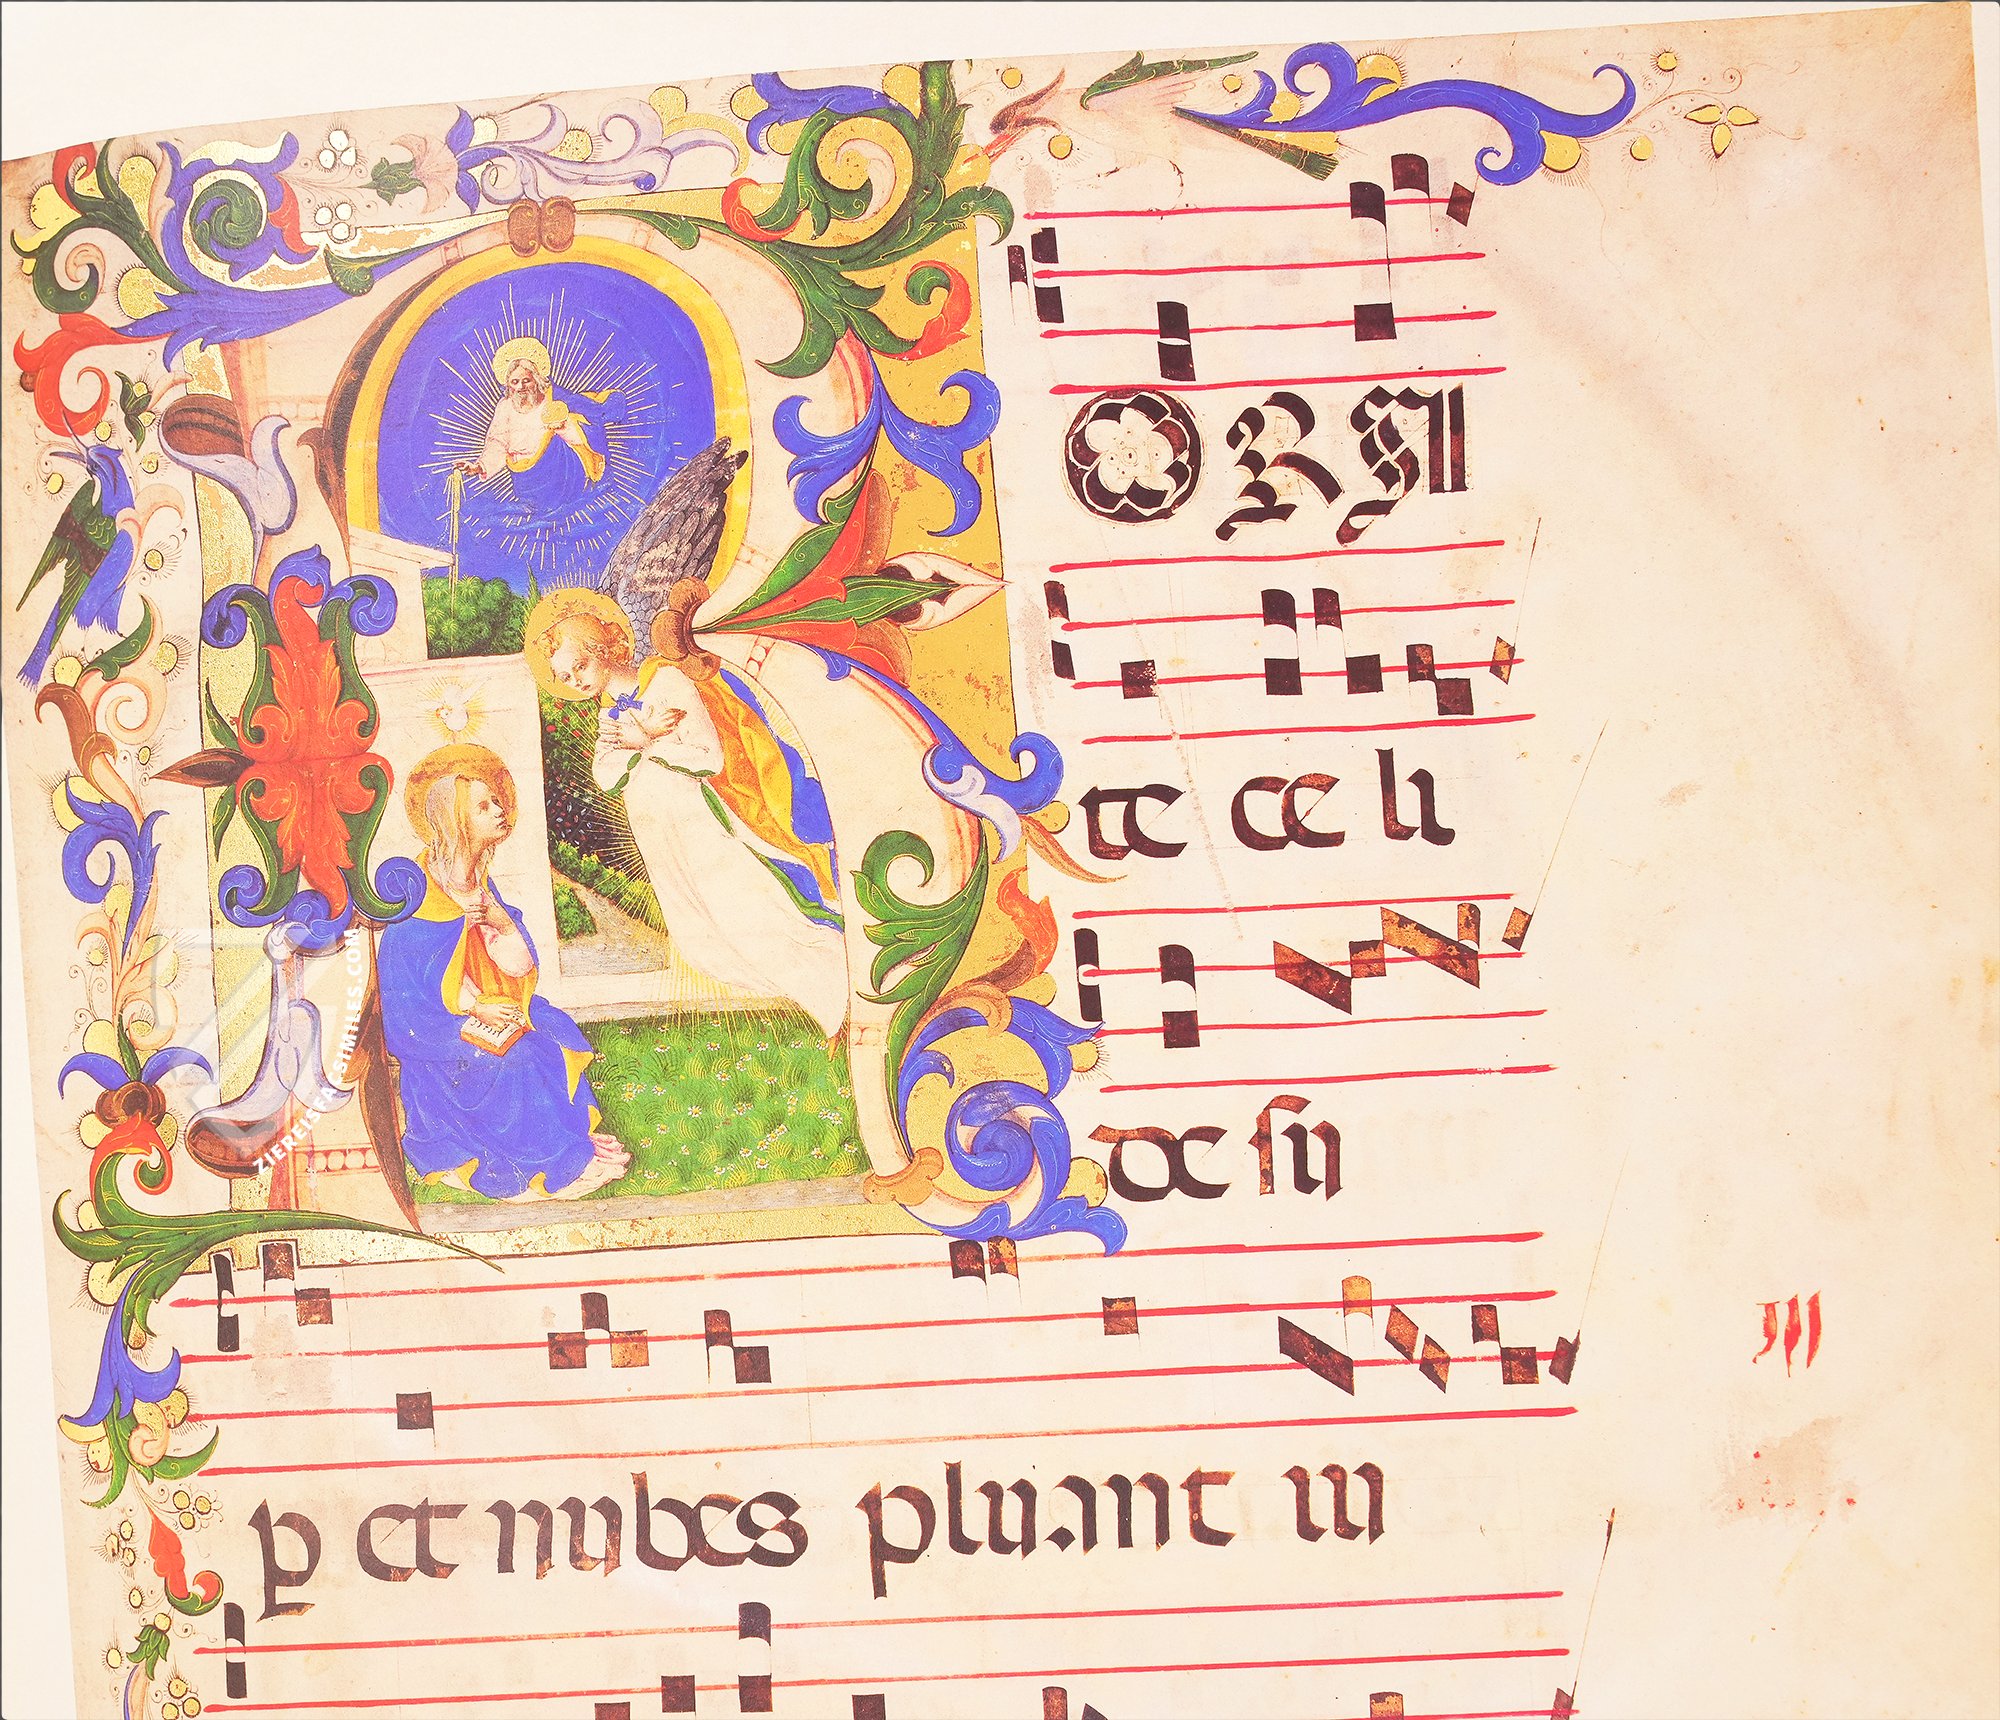 RORA
te celi
de su
p et nubes pluant iu
ZIEREISFACSIMILES.COM